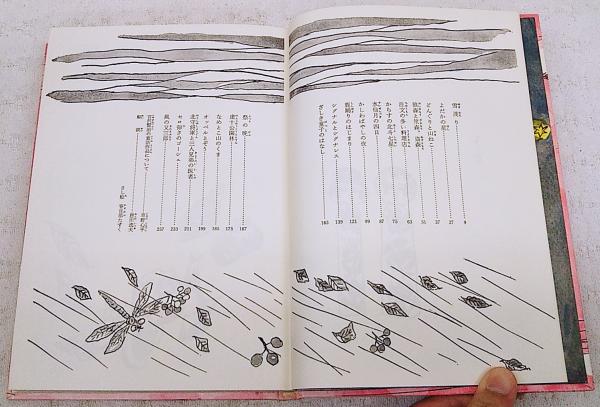 雪渡り 9
よだかの星 27
どんぐりと山ねこ 37
狼森と笊森、盗森 51
注文の多い料理店 63
からすの北斗七星 75
水仙月の四日 87
かしわばやしの夜 99
鹿踊りのはじまり 121
シグナルとシグナレス 139
ざしき童子のはなし 163
祭の晩 167
虔十公園林 175
なめとこ山のくま 185
オッペルとぞう 199
北守将軍と三人兄弟の医者 211
セロ弾きのゴーシュ 233
風の又三郎 257
解説
宮沢賢治の童話作品について
草野心平
恩田逸夫
さし絵 春日部たすく